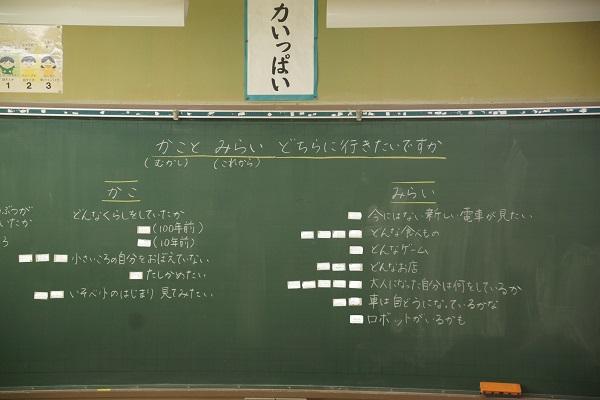 力いっぱい
1 2 3
かことみらいどちらに行きたいですか
(むかし) (これから)
かこ
どんなくらしをしていたか
(100年前)
(10年前)
小さいころの自分をおぼえていない
たしかめたい
いそべトのはじまり 見てみたい
みらい
今にはない新しい電車が見たい
どんな食べもの
どんなゲーム
どんなお店
大人になった自分は何をしているか
車は自どうになっているかな
ロボットがいるかも